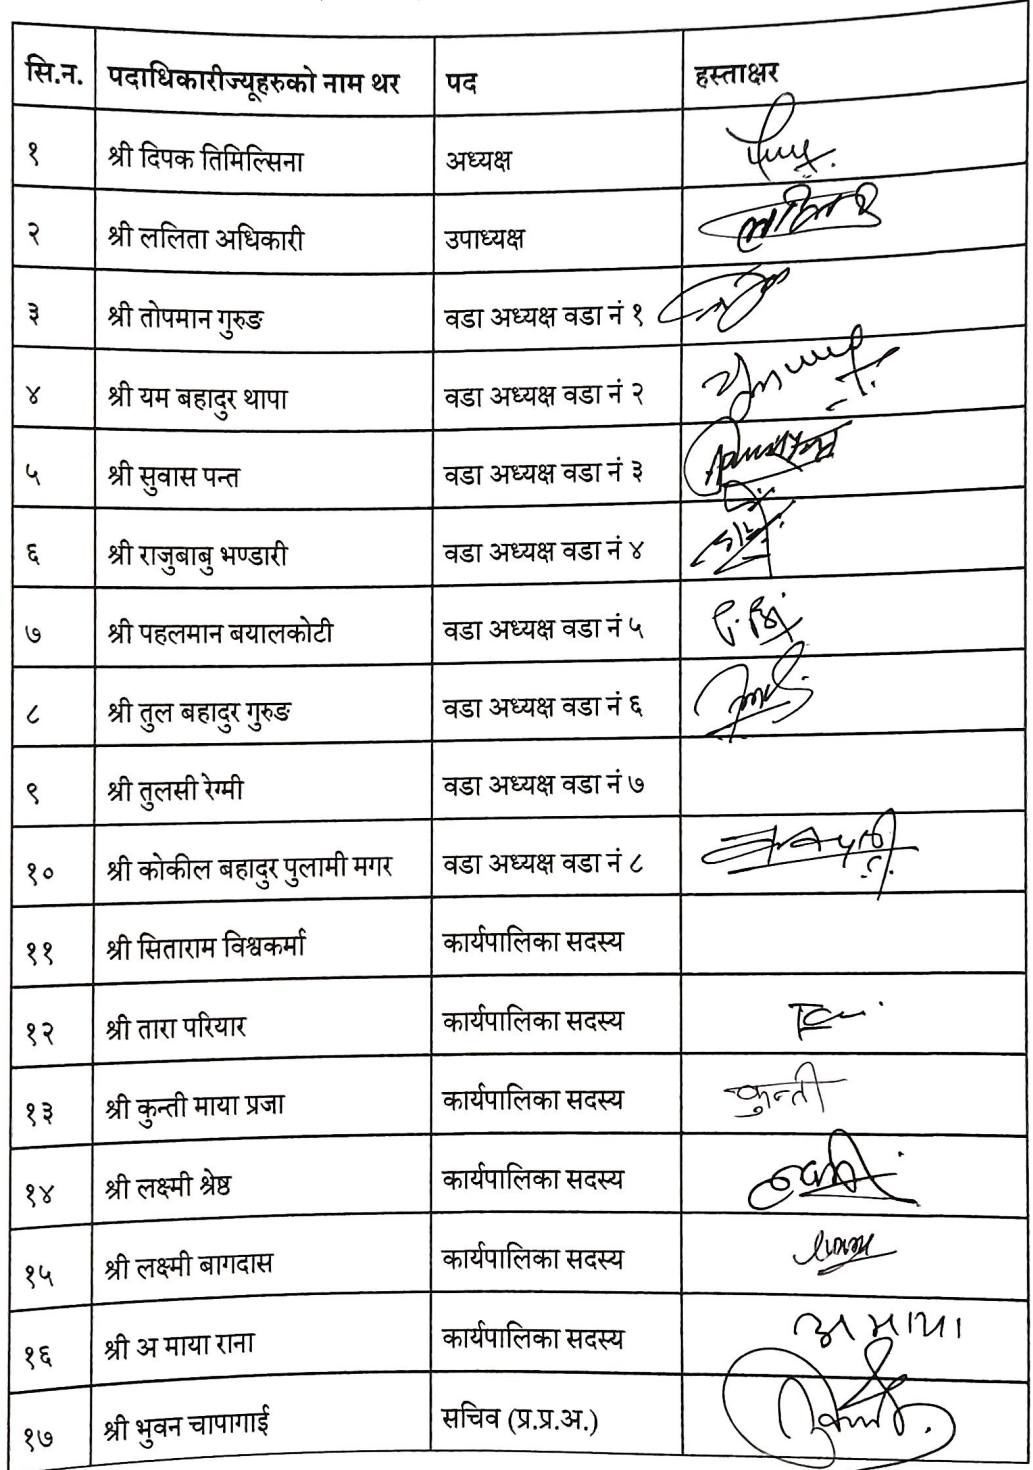 सि.न. पदाधिकारीज्यूहरुको नाम थर पद हस्ताक्षर
१ श्री दिपक तिमिल्सिना अध्यक्ष
२ श्री ललिता अधिकारी उपाध्यक्ष
३ श्री तोपमान गुरुङ वडा अध्यक्ष वडा नं १
४ श्री यम बहादुर थापा वडा अध्यक्ष वडा नं २
५ श्री सुवास पन्त वडा अध्यक्ष वडा नं ३
६ श्री राजुबाबु भण्डारी वडा अध्यक्ष वडा नं ४
७ श्री पहलमान बयालकोटी वडा अध्यक्ष वडा नं ५
८ श्री तुल बहादुर गुरुङ वडा अध्यक्ष वडा नं ६
९ श्री तुलसी रेग्मी वडा अध्यक्ष वडा नं ७
१० श्री कोकील बहादुर पुलामी मगर वडा अध्यक्ष वडा नं ८
११ श्री सिताराम विश्वकर्मा कार्यपालिका सदस्य
१२ श्री तारा परियार कार्यपालिका सदस्य
१३ श्री कुन्ती माया प्रजा कार्यपालिका सदस्य कुन्ती
१४ श्री लक्ष्मी श्रेष्ठ कार्यपालिका सदस्य
१५ श्री लक्ष्मी बागदास कार्यपालिका सदस्य
१६ श्री अ माया राना कार्यपालिका सदस्य अ माया
१७ श्री भुवन चापागाई सचिव (प्र.प्र.अ.)